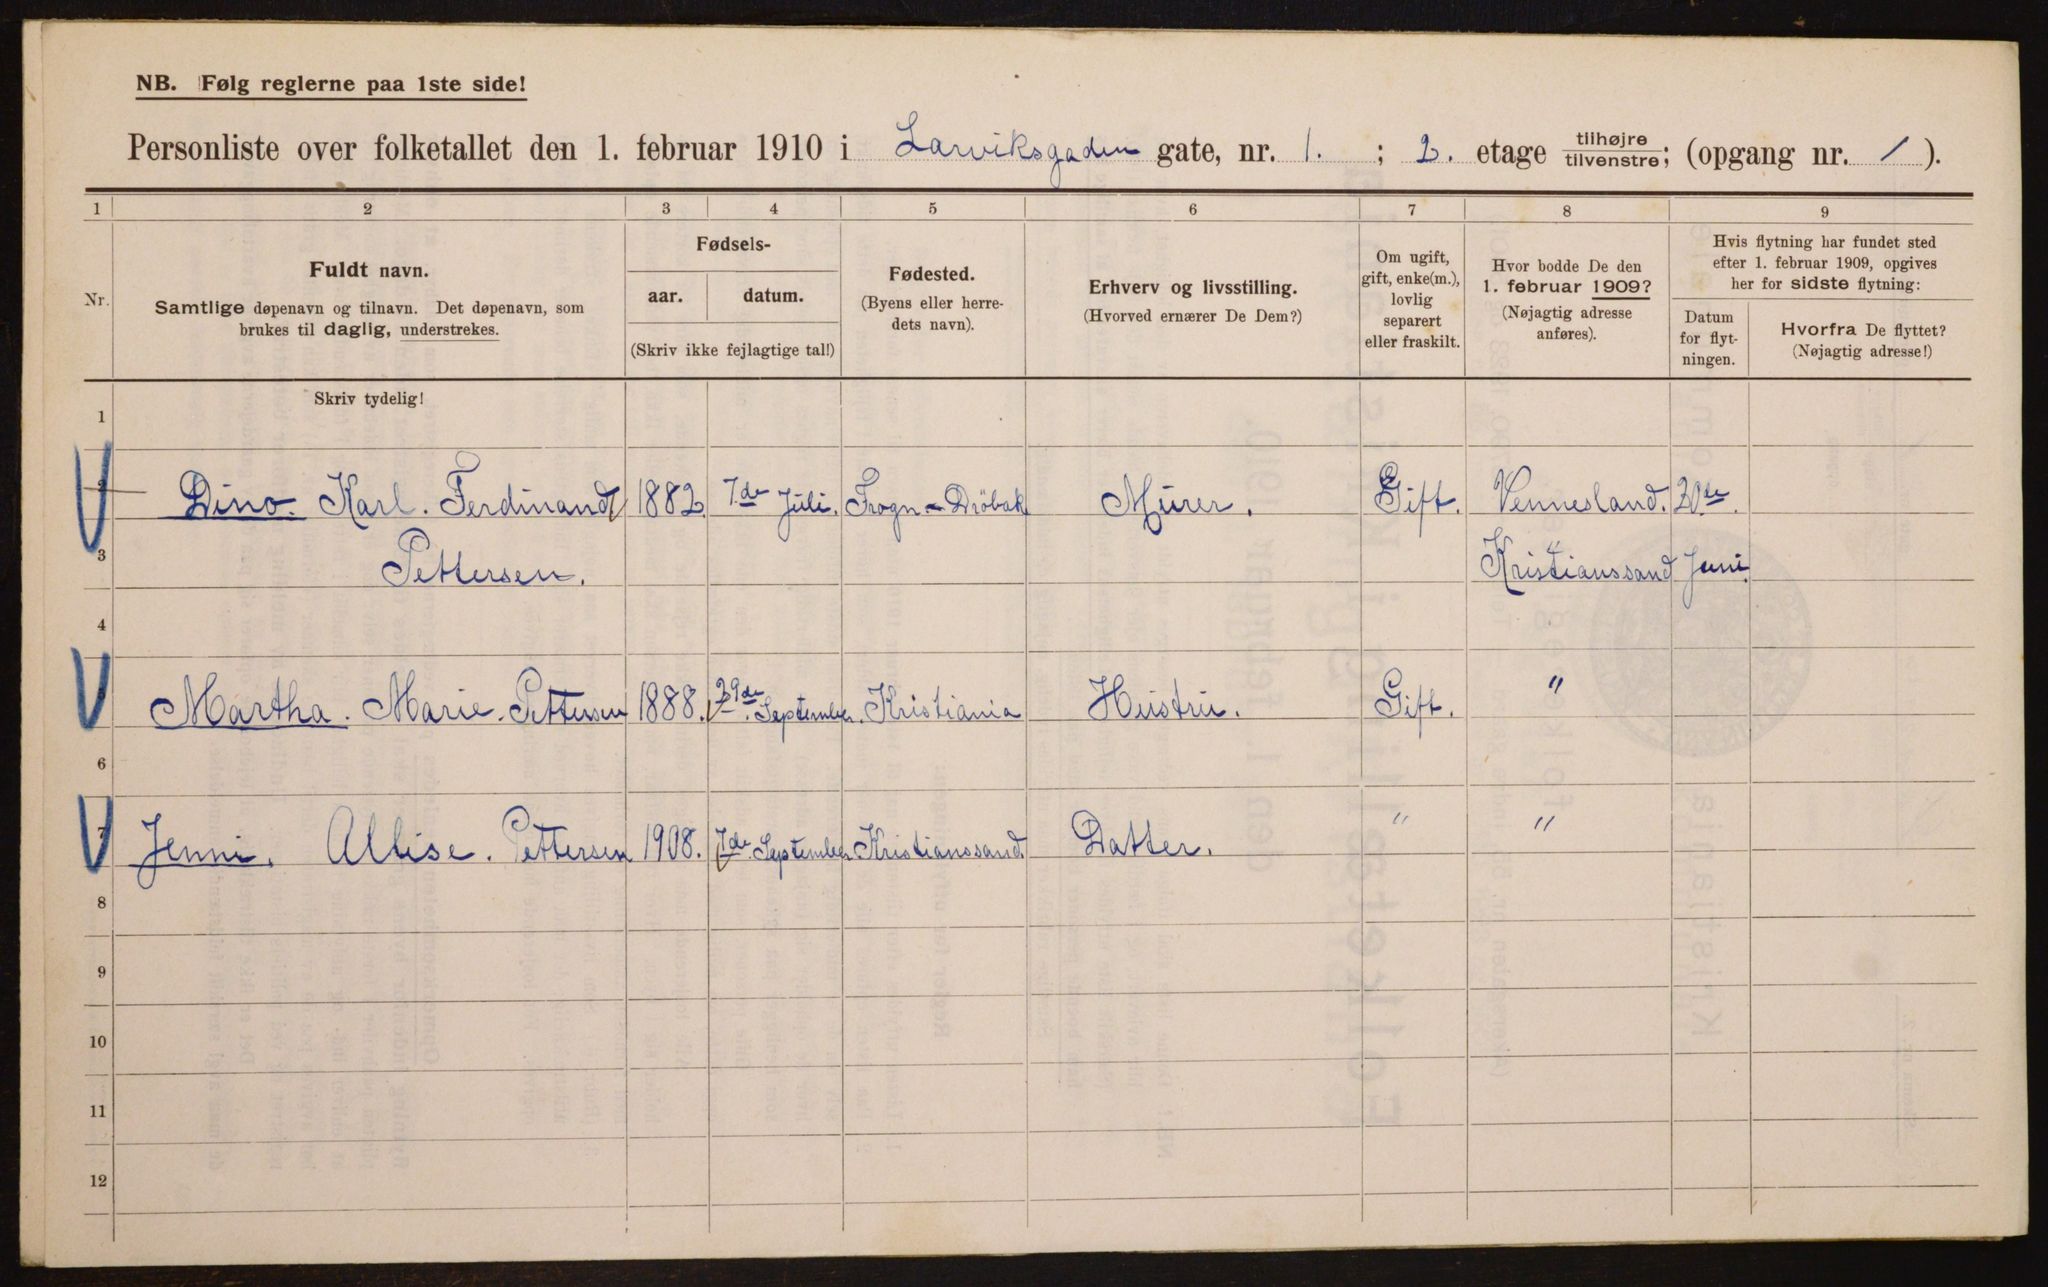 NB. Følg reglerne paa 1ste side!
Personliste over folketallet den 1. februar 1910 i Larviksgaden gate, nr. 1. ; 2. etage tilhøjre/tilvenstre; (opgang nr. / ).
1 2 3 4 5 6 7 8 9
Nr.
Fuldt navn.
Samtlige døpenavn og tilnavn. Det døpenavn, som
brukes til daglig, understrekes.
Fødsels-
aar. datum.
(Skriv ikke fejlagtige tal!)
Fødested.
(Byens eller herre-
dets navn).
Erhverv og livsstilling.
(Hvorved ernærer De Dem?)
Om ugift,
gift, enke(m.),
lovlig
separert
eller fraskilt.
Hvor bodde De den
1. februar 1909?
(Nøjagtig adresse
anføres).
Hvis flytning har fundet sted
efter 1. februar 1909, opgives
her for sidste flytning:
Datum
for flyt-
ningen.
Hvorfra De flyttet?
(Nøjagtig adresse!)
Skriv tydelig!
1
2 Dino. Karl. Ferdinand 1882. 7de Juli. Frogn - Dröbak Murer. Gift. Vennesland. 20de.
3 Pettersen. Kristianssand Juni.
4
Martha. Marie. Pettersen 1888. 29de September. Kristiania Hustru. Gift. "
6
7 Jenni. Alvise. Pettersen 1908. 7de September Kristianssand. Datter. " "
8
9
10
11
12